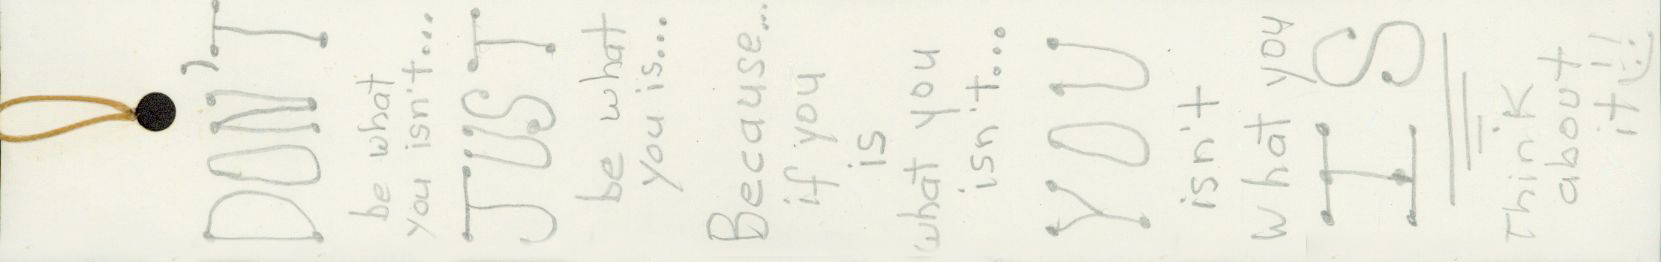 DON'T
be what
you isn't...
JUST
be what
you is...
Because...
if you
is
what you
isn't...
YOU
isn't
what you
IS
Think
about
it!!